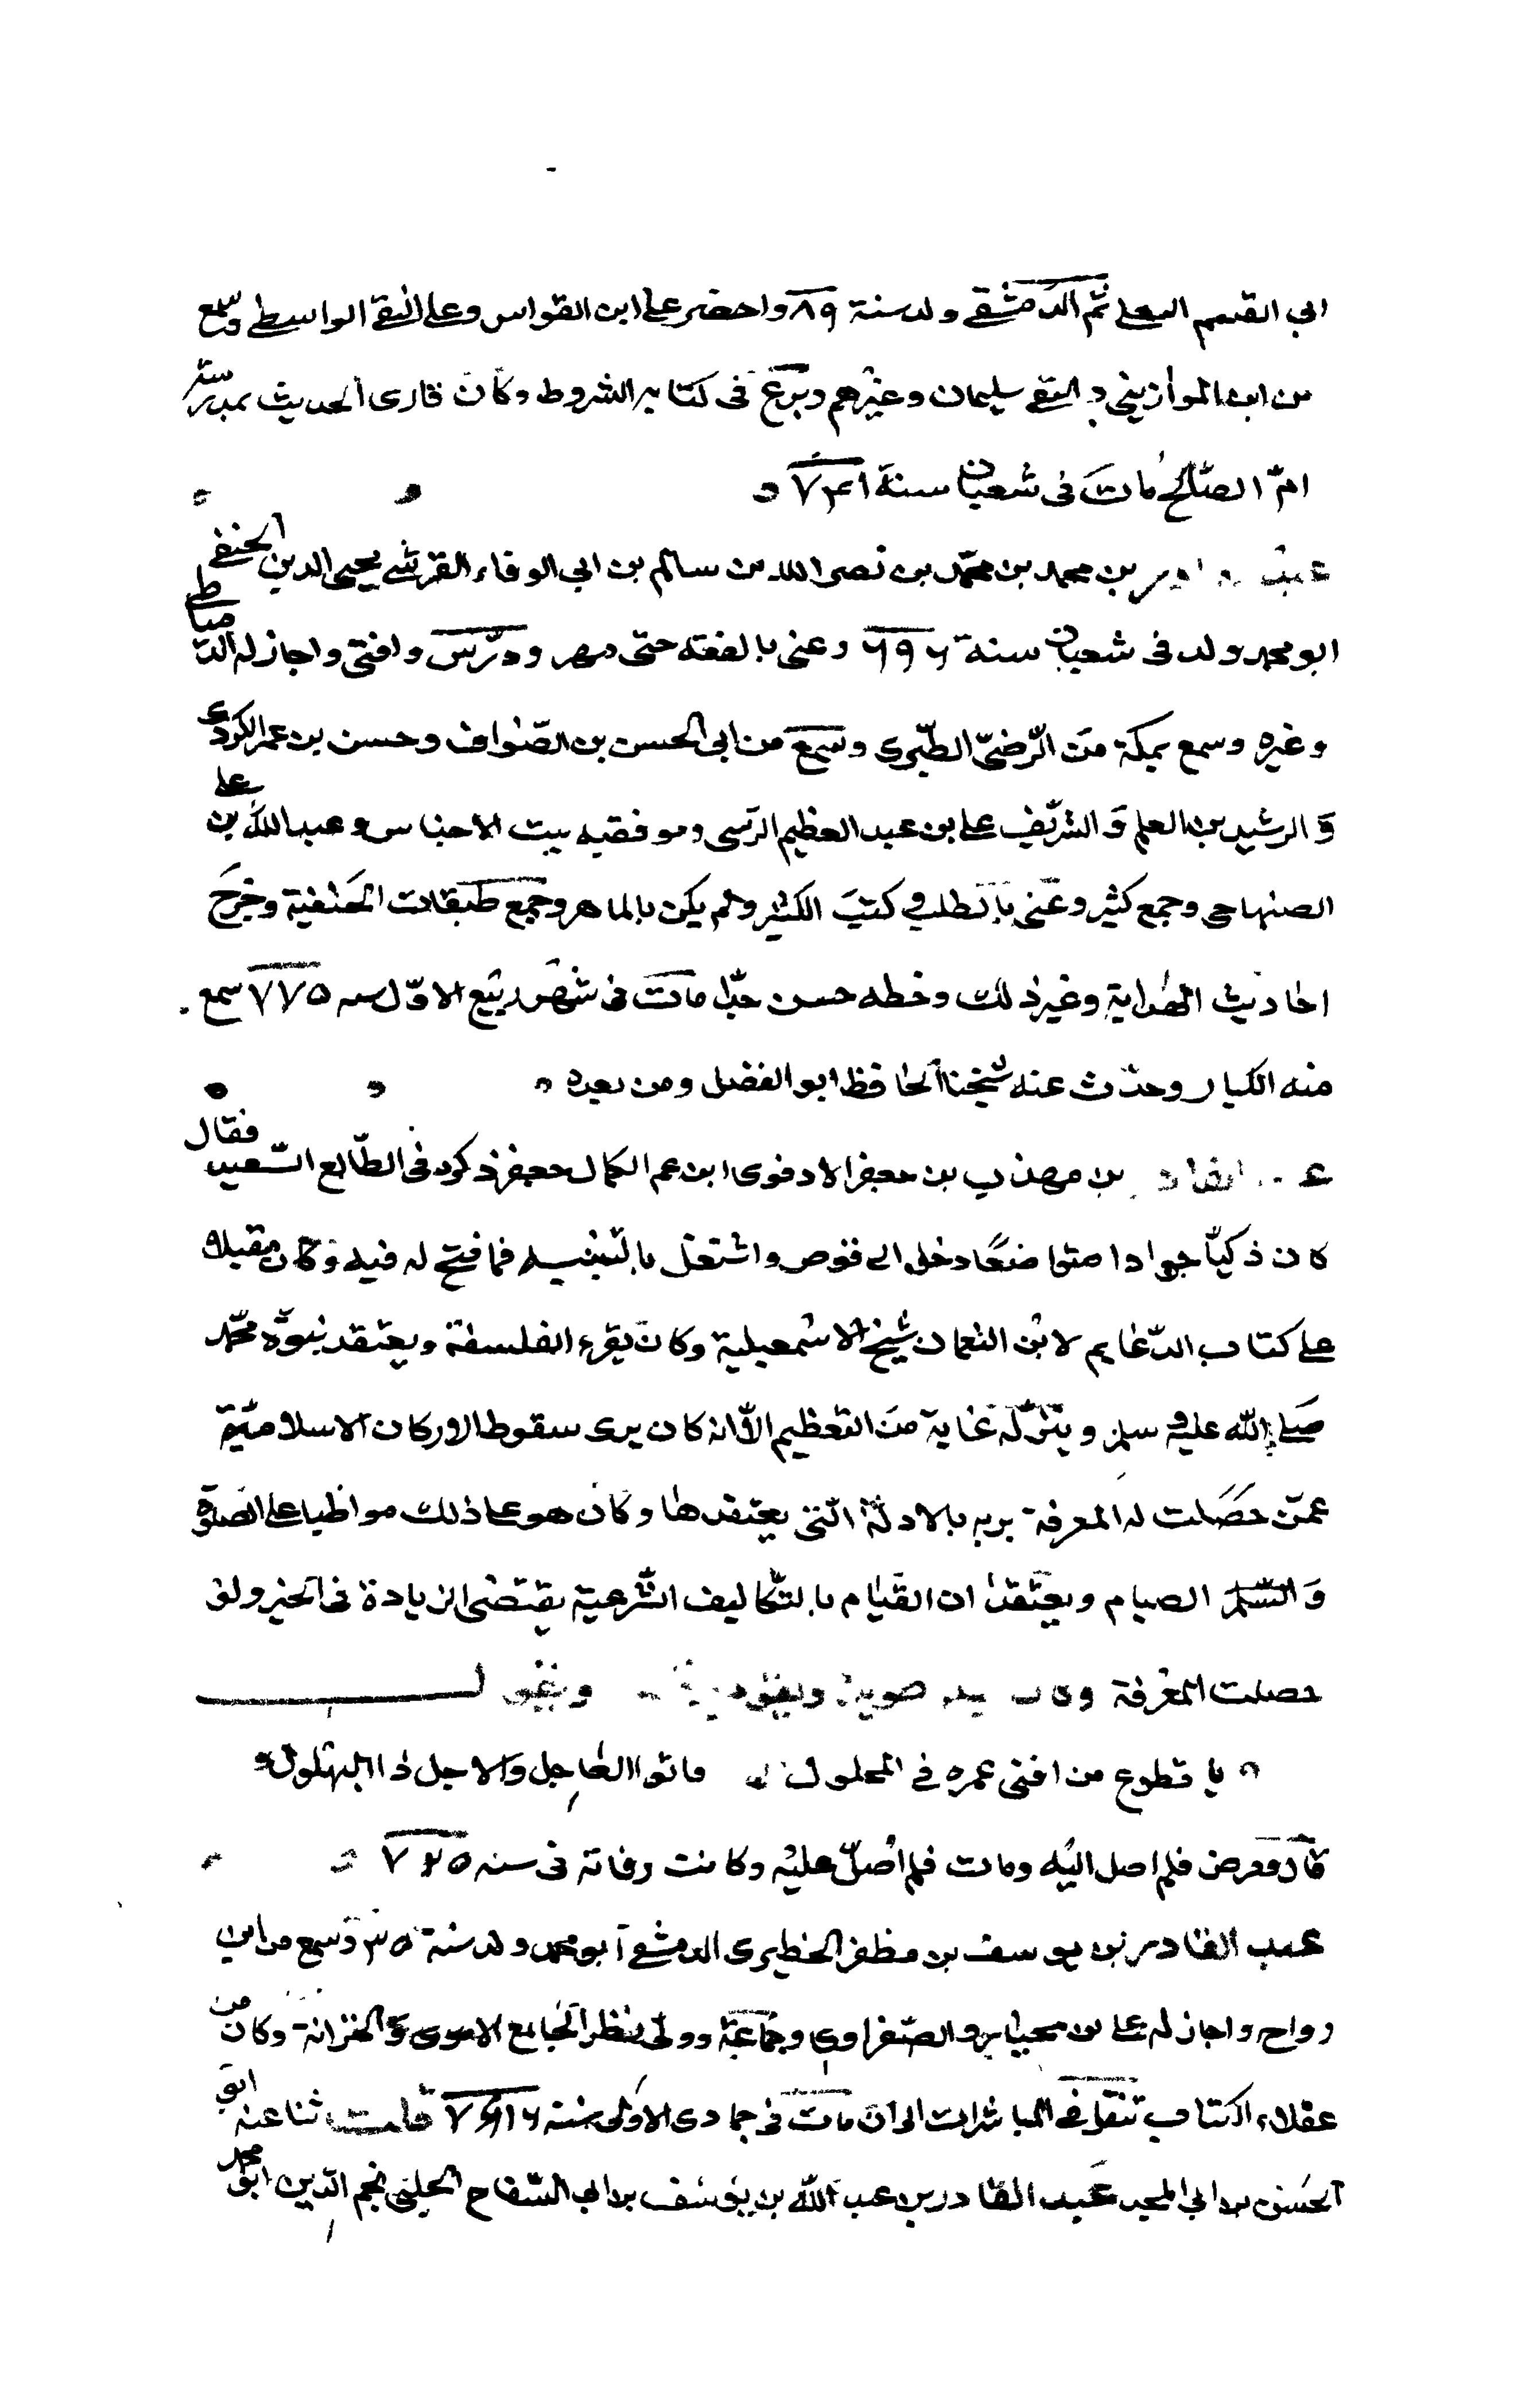 ابي القسم البعلي ثم الدمشقي ولد سنة ٨٩ واحضر على ابن القواس وعلى التقي الواسطي وسمع
من ابن الموازيني والتقي سليمان وغيرهم وبرع في كتابة الشروط وكان قارى الحديث بمدرسة
ام الصالح مات في شعبان سنة ٧٤١
بن محمد بن محمد بن نصر الله بن سالم بن ابي الوفاء القرشي محيي الدين الحنفي
ابو محمد ولد في شعبان سنة ٦٩٦ وعنى بالفقه حتى مهر ودرس وافتى واجاز له الدمياطي
وغيره وسمع بمكة من الرضي الطبري وسمع من ابي الحسن بن الصواف وحسن بن عمر الكردي
والرشيد بن العلم والشريف علي بن عبد العظيم الرسي وموفقيه بيت الاجناس وعبد الله بن علي
الصنهاجي وجمع كثير وعنى بالطلب وكتب الكثير ولم يكن بالماهر وجمع طبقات الحنفية وخرج
احاديث الهداية وغير ذلك وخطه حسن جدا مات في شهر ربيع الاول سنه ٧٧٥ سمع
منه الكبار وحدث عنه شيخنا الحافظ ابو الفضل ومن بعده
بن مهذب بن جعفر الادفوى ابن عم الكمال جعفر ذكره في الطالع السعيد فقال
كان ذكيا جوادا متواضعا دخل الى قوص واشتغل بالتنبيه فما فتح له فيه وكان مقبلا
على كتاب الدعايم لابن النعمان شيخ الاسمعيلية وكان يقرء الفلسفة ويعتقد نبوة محمد
صلى الله عليه وسلم وينزله غاية من التعظيم الا انه كان يرى سقوط الاركان الاسلامية
عمن حصلت له المعرفة بربه بالادلة التي يعتقدها وكان هو على ذلك مواظبا على الصلوة
و الصيام ويعتقد ان القيام بالتكاليف الشرعية يقتضى الزيادة في الخير ولو
حصلت المعرفة
يا قطوع من افنى عمره في المحلول فاتو العاجل والاجل ذا البهلول
قال ومرض فلم اصل اليه ومات فلم اصل عليه وكانت وفاته في سنه ٧٢٥
عبد القادر بن يوسف بن مظفر الخطيرى الدمشقي ابو محمد ولد سنة ٣٥ وسمع من ابن
رواح واجاز له علي بن والصفراوي وجماعة وولى نظر الجامع الاموي والخزانة وكان من
عقلاء الكتاب تنقل في المباشرات الى ان مات في جمادى الاولى سنة ٧١٦ قلت ثنا عنه ابو
الحسن بن ابي المجد عبد القادر بن عبد الله بن يوسف بن ابي السفاح الحلبي نجم الدين ابو محمد